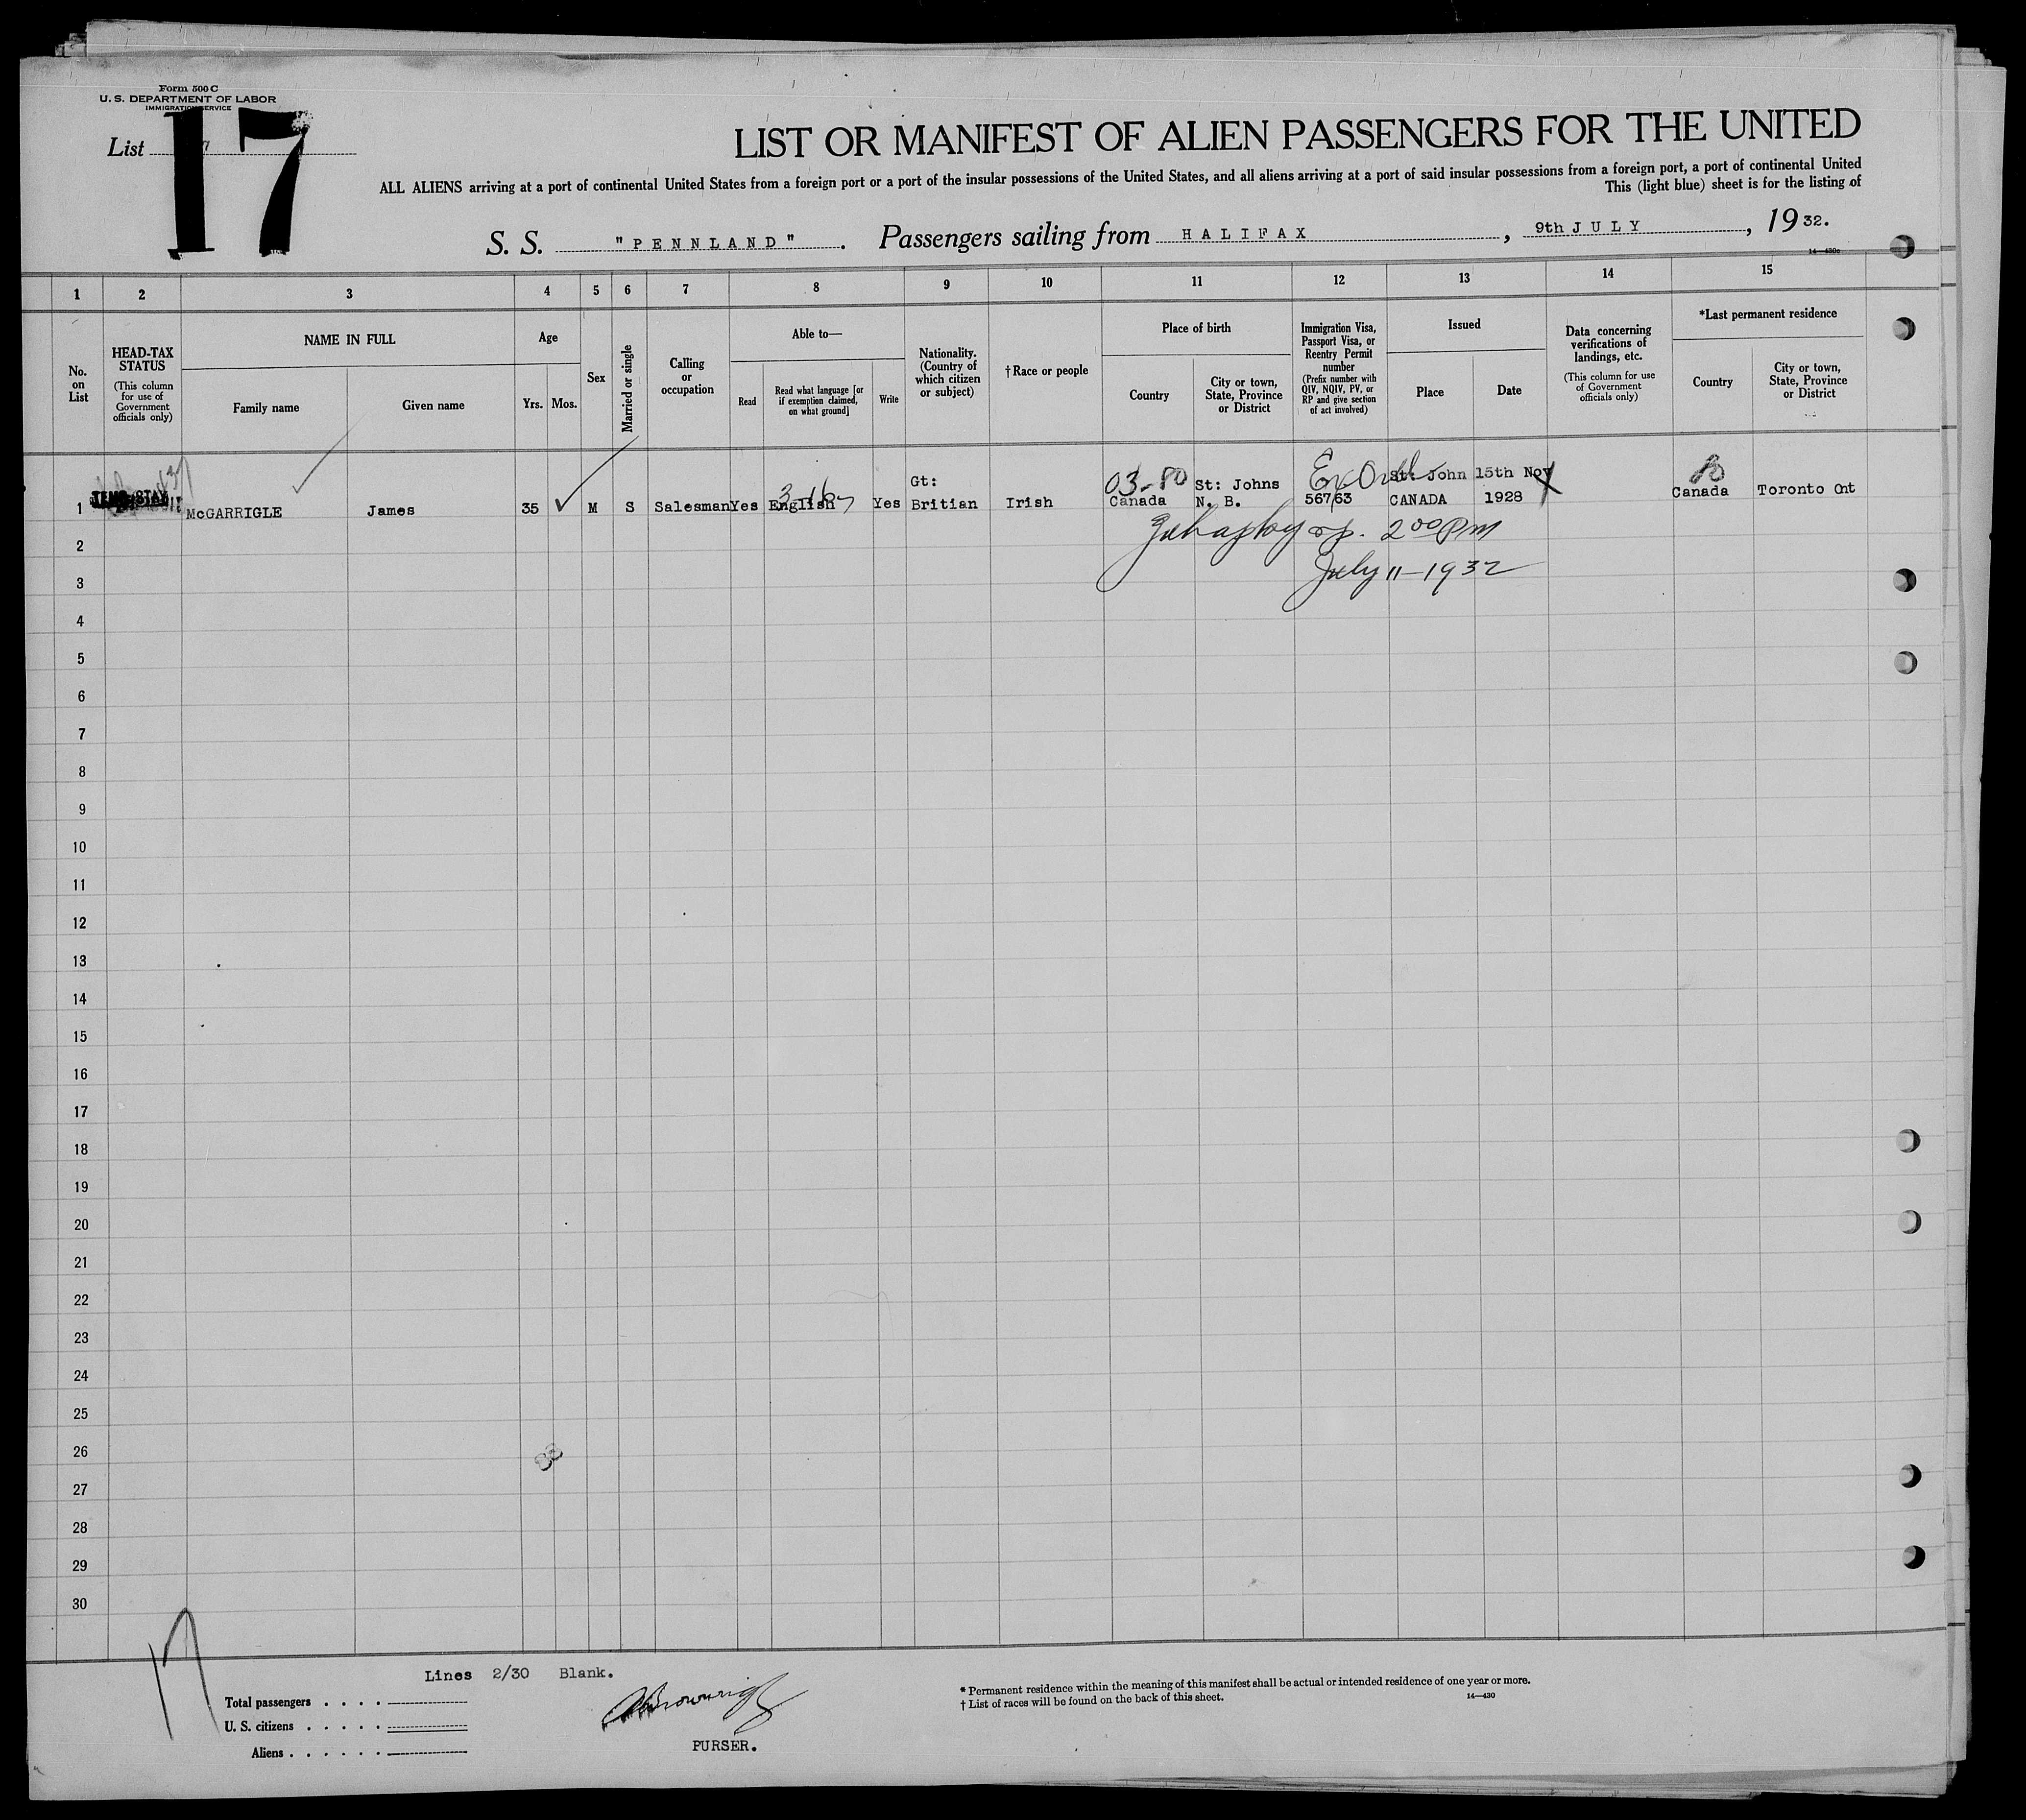 Form 500 C
U. S. DEPARTMENT OF LABOR
IMMIGRATION SERVICE
List 17
LIST OR MANIFEST OF ALIEN PASSENGERS FOR THE UNITED
ALL ALIENS arriving at a port of continental United States from a foreign port or a port of the insular possessions of the United States, and all aliens arriving at a port of said insular possessions from a foreign port, a port of continental United
This (light blue) sheet is for the listing of
S. S. "PENNLAND". Passengers sailing from HALIFAX, 9th JULY, 1932.
14—430c
1 2 3 4 5 6 7 8 9 10 11 12 13 14 15
No. on List
HEAD-TAX STATUS (This column for use of Government officials only)
NAME IN FULL
Family name Given name
Age
Yrs. Mos.
Sex
Married or single
Calling or occupation
Able to—
Read Read what language [or if exemption claimed, on what ground] Write
Nationality. (Country of which citizen or subject)
†Race or people
Place of birth
Country City or town, State, Province or District
Immigration Visa, Passport Visa, or Reentry Permit number (Prefix number with QIV, NQIV, PV, or RP and give section of act involved)
Issued
Place Date
Data concerning verifications of landings, etc. (This column for use of Government officials only)
*Last permanent residence
Country City or town, State, Province or District
03-80
1 McGARRIGLE James 35 M S Salesman Yes English Yes Gt: Britian Irish Canada St: Johns N. B. 567/63 St: John CANADA 15th Nov 1928 Canada Toronto Ont
2 00 PM
July 11-1932
2
3
4
5
6
7
8
9
10
11
12
13
14
15
16
17
18
19
20
21
22
23
24
25
26
27
28
29
30
88
17
Lines 2/30 Blank.
Total passengers . . . .
U. S. citizens . . . . .
Aliens . . . . . .
PURSER.
* Permanent residence within the meaning of this manifest shall be actual or intended residence of one year or more.
† List of races will be found on the back of this sheet.
14—430